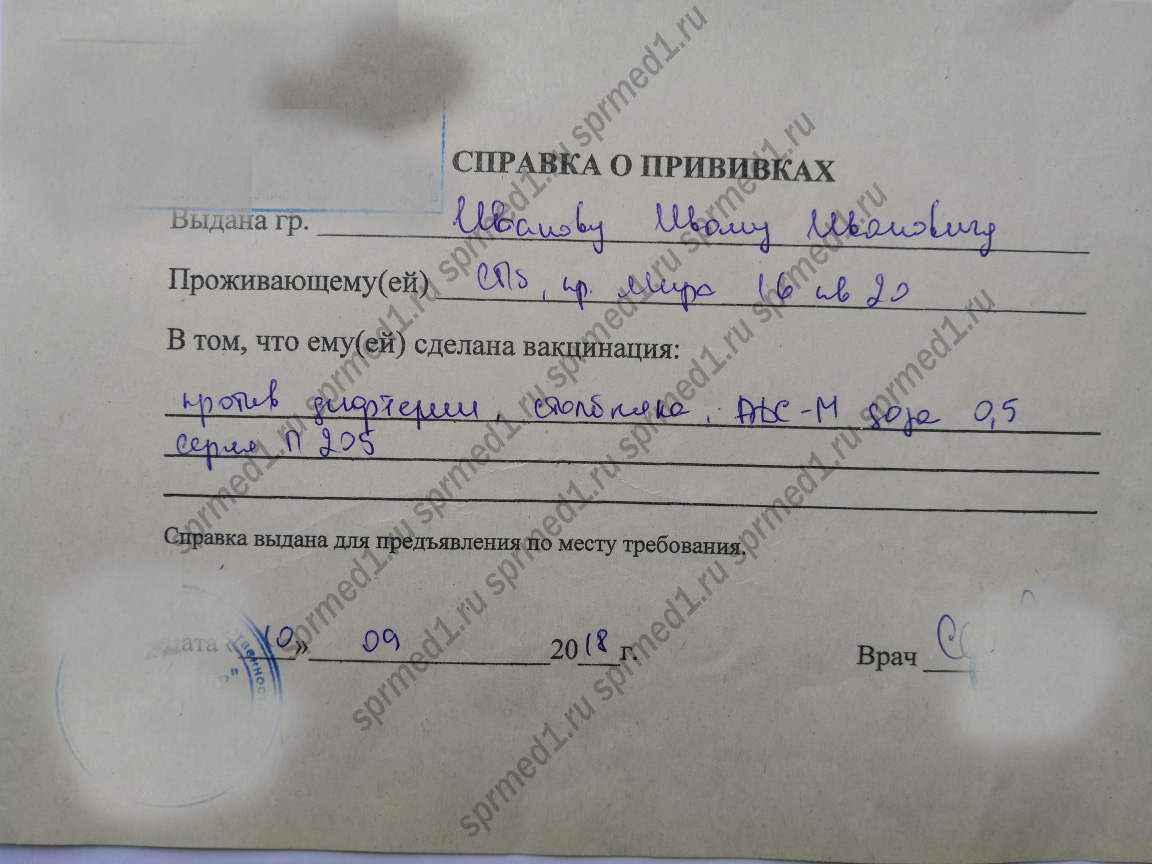 СПРАВКА О ПРИВИВКАХ
Выдана гр. Иванову Ивану Ивановичу
Проживающему(ей) СПб, пр. Мира 16 кв 20
В том, что ему(ей) сделана вакцинация:
против дифтерии, столбняка. АДС-М доза 0,5
серия П 205
Справка выдана для предъявления по месту требования.
Дата «10» 09 2018 г.
Врач
sprmed1.ru sprmed1.ru sprmed1.ru sprmed1.ru
sprmed1.ru sprmed1.ru sprmed1.ru sprmed1.ru
sprmed1.ru sprmed1.ru sprmed1.ru sprmed1.ru
sprmed1.ru sprmed1.ru sprmed1.ru